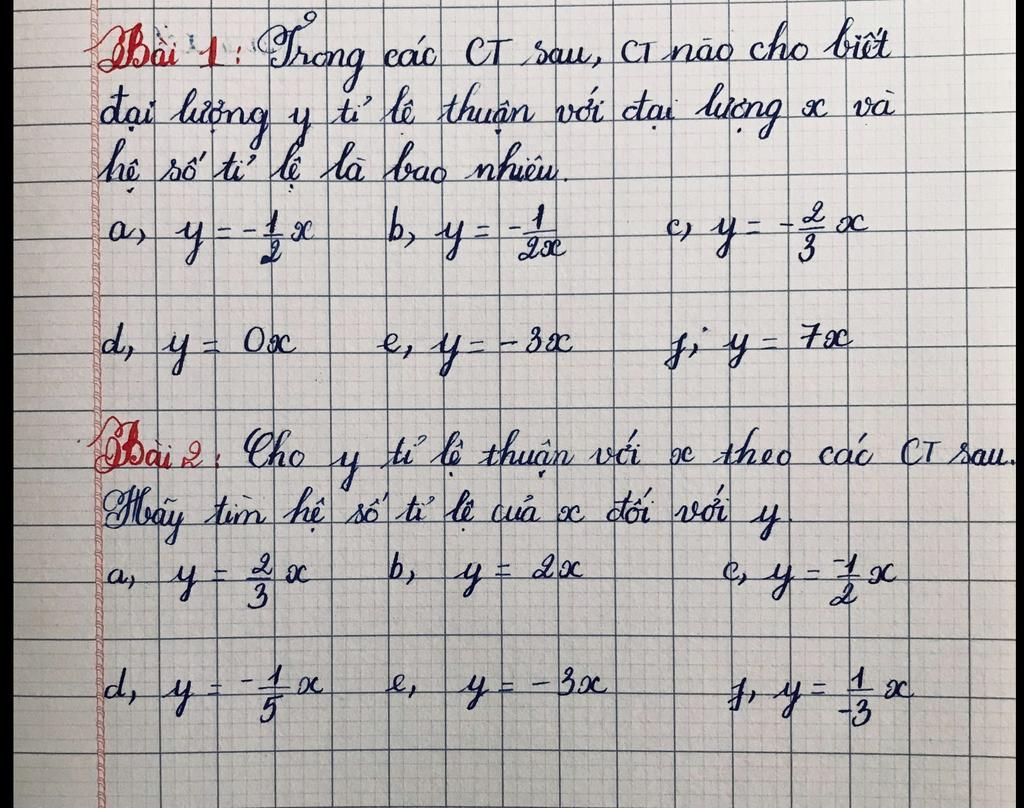 Bài 1: Trong các CT sau, CT nào cho biết
đại lượng y tỉ lệ thuận với đại lượng x và
hệ số tỉ lệ là bao nhiêu.
a, y = -1/2 x b, y = -1/2x c, y = -2/3 x
d, y = 0x e, y = -3x f; y = 7x
Bài 2: Cho y tỉ lệ thuận với x theo các CT sau.
Hãy tìm hệ số tỉ lệ của x đối với y.
a, y = 2/3 x b, y = 2x c, y = -1/2 x
d, y = -1/5 x e, y = -3x f, y = 1/-3 x